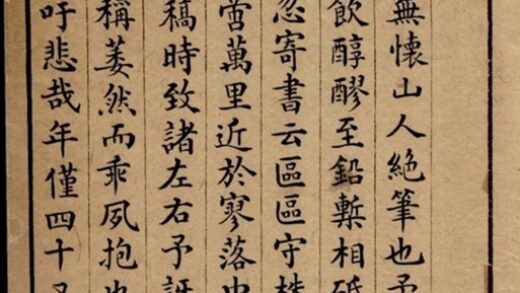 無懷山人絶筆也予
飲醇醪至鉛槧相砥
忽寄書云區區守株
嘗萬里近於寥落中
稿時致諸左右予訝
稱萎然而乖夙抱也
吁悲哉年僅四十又